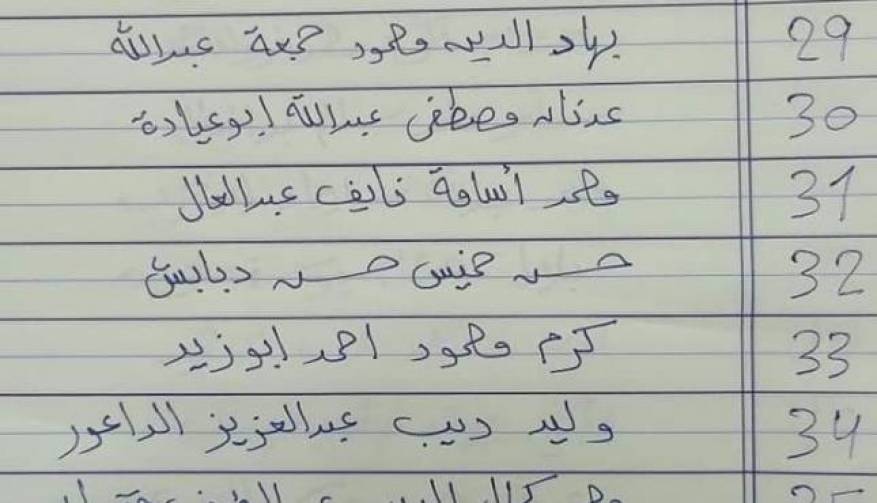 29 بهاد الدين محمود جمعة عبدالله
30 عدنان مصطفى عبدالله ابوعيادة
31 محمد أسامة نايف عبدالعال
32 حسن خميس حسن دبابش
33 كرم محمود احمد ابوزيد
34 وليد ديب عبدالعزيز الداعور